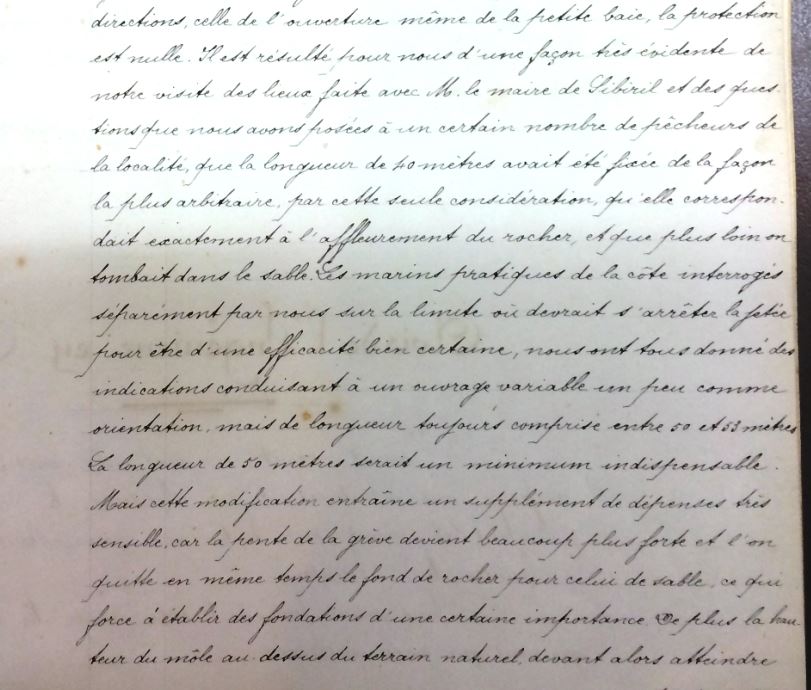 directions, celle de l'ouverture même de la petite baie, la protection
est nulle. Il est résulté pour nous d'une façon très évidente de
notre visite des lieux faite avec M. le maire de Sibiril et des ques-
tions que nous avons posées à un certain nombre de pêcheurs de
la localité, que la longueur de 40 mètres avait été fixée de la façon
la plus arbitraire, par cette seule considération, qu'elle correspon-
dait exactement à l'affleurement du rocher, et que plus loin on
tombait dans le sable. Les marins pratiques de la côte interrogés
séparément par nous sur la limite où devrait s'arrêter la jetée
pour être d'une efficacité bien certaine, nous ont tous donné des
indications conduisant à un ouvrage variable un peu comme
orientation, mais de longueur toujours comprise entre 50 et 53 mètres
La longueur de 50 mètres serait un minimum indispensable.
Mais cette modification entraîne un supplément de dépenses très
sensible, car la pente de la grève devient beaucoup plus forte et l'on
quitte en même temps le fond de rocher pour celui de sable, ce qui
force à établir des fondations d'une certaine importance. De plus la hau-
teur du môle au-dessus du terrain naturel, devant alors atteindre